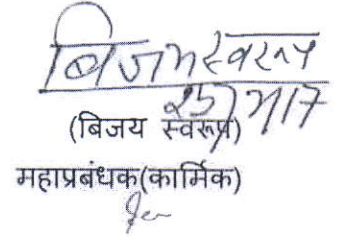 बिजय स्वरूप
25/7/17
(बिजय स्वरूप)
महाप्रबंधक(कार्मिक)